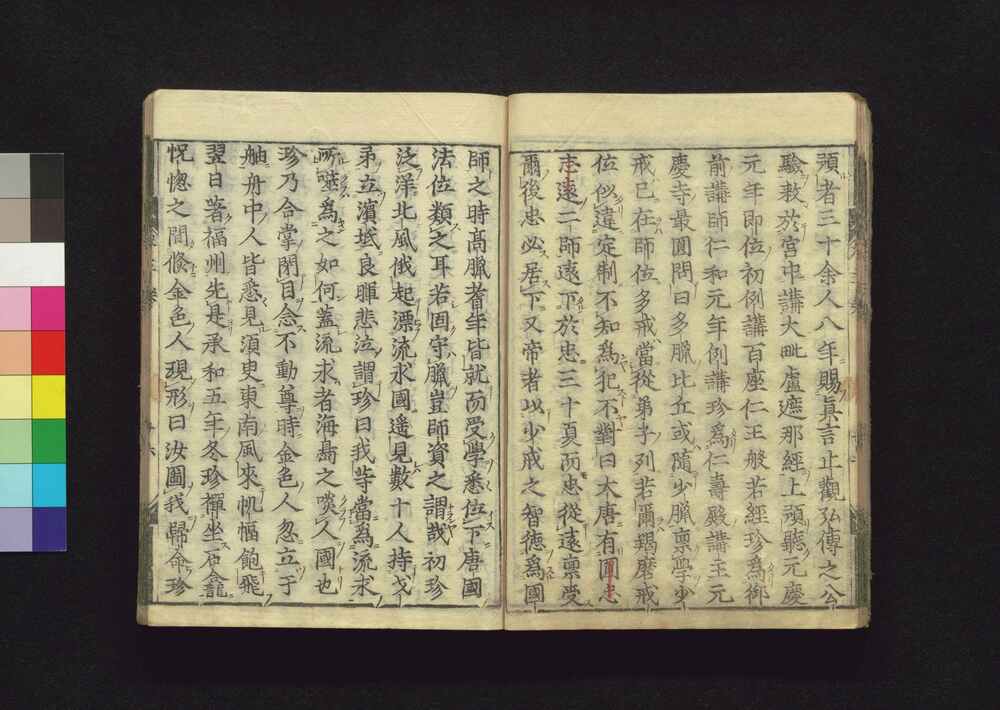 預者三十余人八年賜眞言止觀弘傳之公
驗敕於宮中講大毗盧遮那經上預聽元慶
元年即位初例講百座仁王般若經珍爲御
前講師仁和元年例講珍爲仁壽殿講主元
慶寺最圓問曰多臘比丘或隨少臘稟學少
戒已在師位多戒當從弟子列若爾羯磨戒
位似違定制不知爲犯不對曰大唐有圓忠
志遠二師遠下於忠三十夏而忠從遠稟受
爾後忠必居下又帝者以少戒之智德爲國
師之時高臘耆年皆就而受學悉位下唐國
法位類之耳若固守臘豈師資之謂哉初珍
泛洋北風俄起漂流求國遙見數十人持戈
弟立濱城良暉悲泣謂珍曰我等當爲流求
所噬爲之如何蓋流求者海島之啖人國也
珍乃合掌閉目念不動尊時金色人忽立于
舳舟中人皆悉見須臾東南風來帆幅飽飛
翌日著福州先是承和五年冬珍禪坐石龕
怳惚之間倏金色人現形曰汝圖我歸命珍